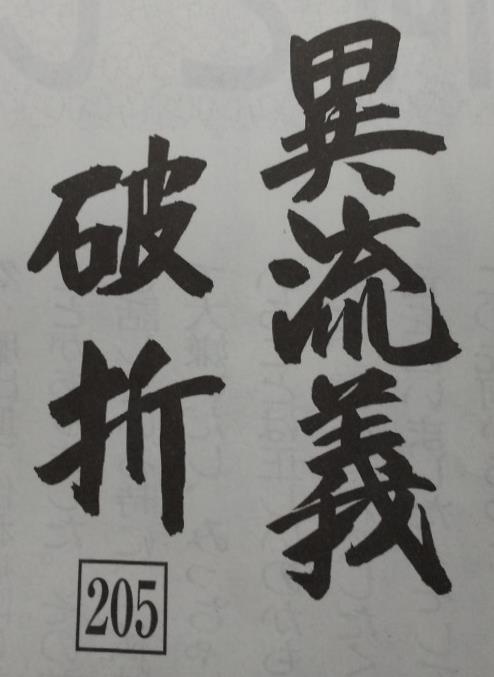 異流義
破折
205